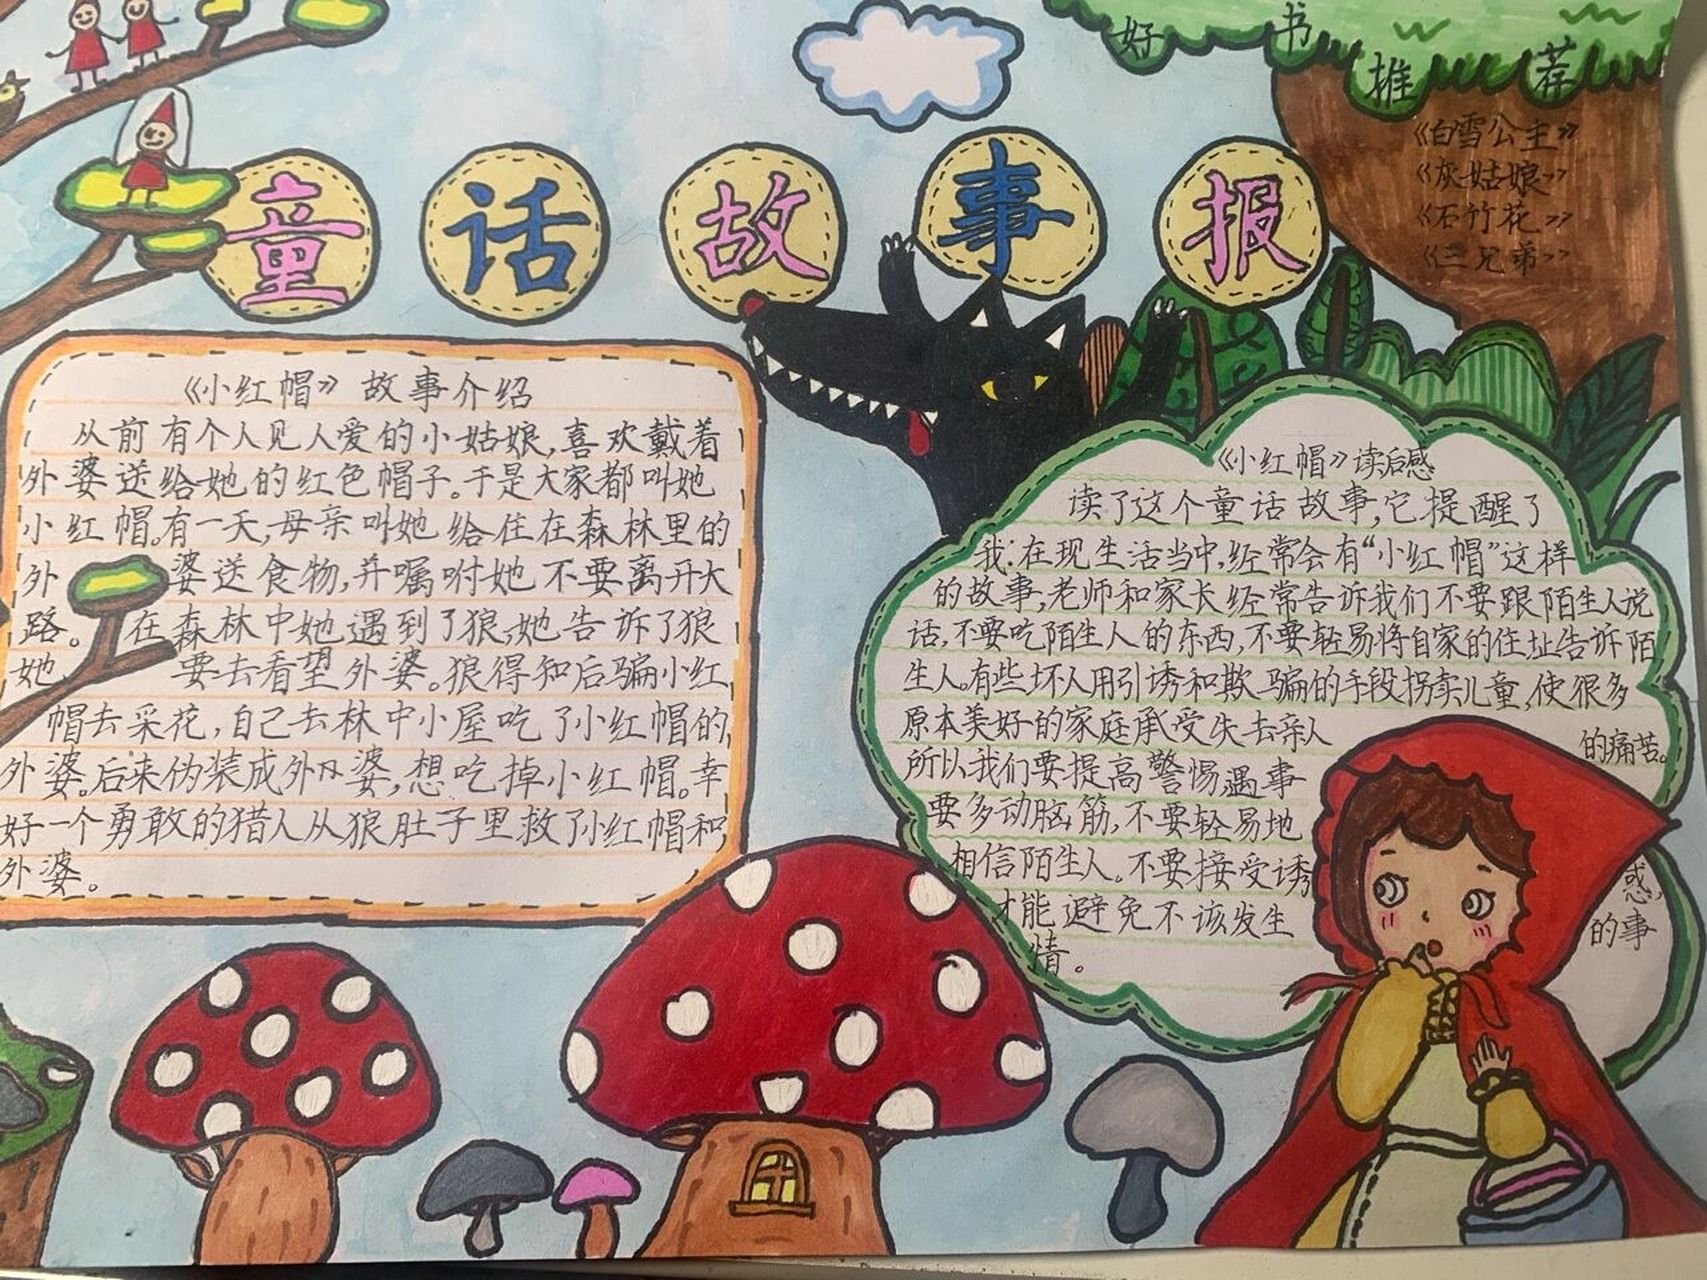 好书推荐
《白雪公主》
《灰姑娘》
《石竹花》
《三兄弟》
童话故事报
《小红帽》故事介绍
从前有个人见人爱的小姑娘,喜欢戴着
外婆送给她的红色帽子。于是大家都叫她
小红帽。有一天,母亲叫她给住在森林里的
外婆送食物,并嘱咐她不要离开大
路。在森林中她遇到了狼,她告诉了狼
她要去看望外婆。狼得知后骗小红
帽去采花,自己去林中小屋吃了小红帽的
外婆。后来伪装成外婆,想吃掉小红帽。幸
好一个勇敢的猎人从狼肚子里救了小红帽和
外婆。
《小红帽》读后感
读了这个童话故事,它提醒了
我:在现生活当中,经常会有“小红帽”这样
的故事,老师和家长经常告诉我们不要跟陌生人说
话,不要吃陌生人的东西,不要轻易将自家的住址告诉陌
生人。有些坏人用引诱和欺骗的手段拐卖儿童,使很多
原本美好的家庭承受失去亲人的痛苦。
所以我们要提高警惕,遇事
要多动脑筋,不要轻易地
相信陌生人。不要接受诱惑,
才能避免不该发生的事
情。